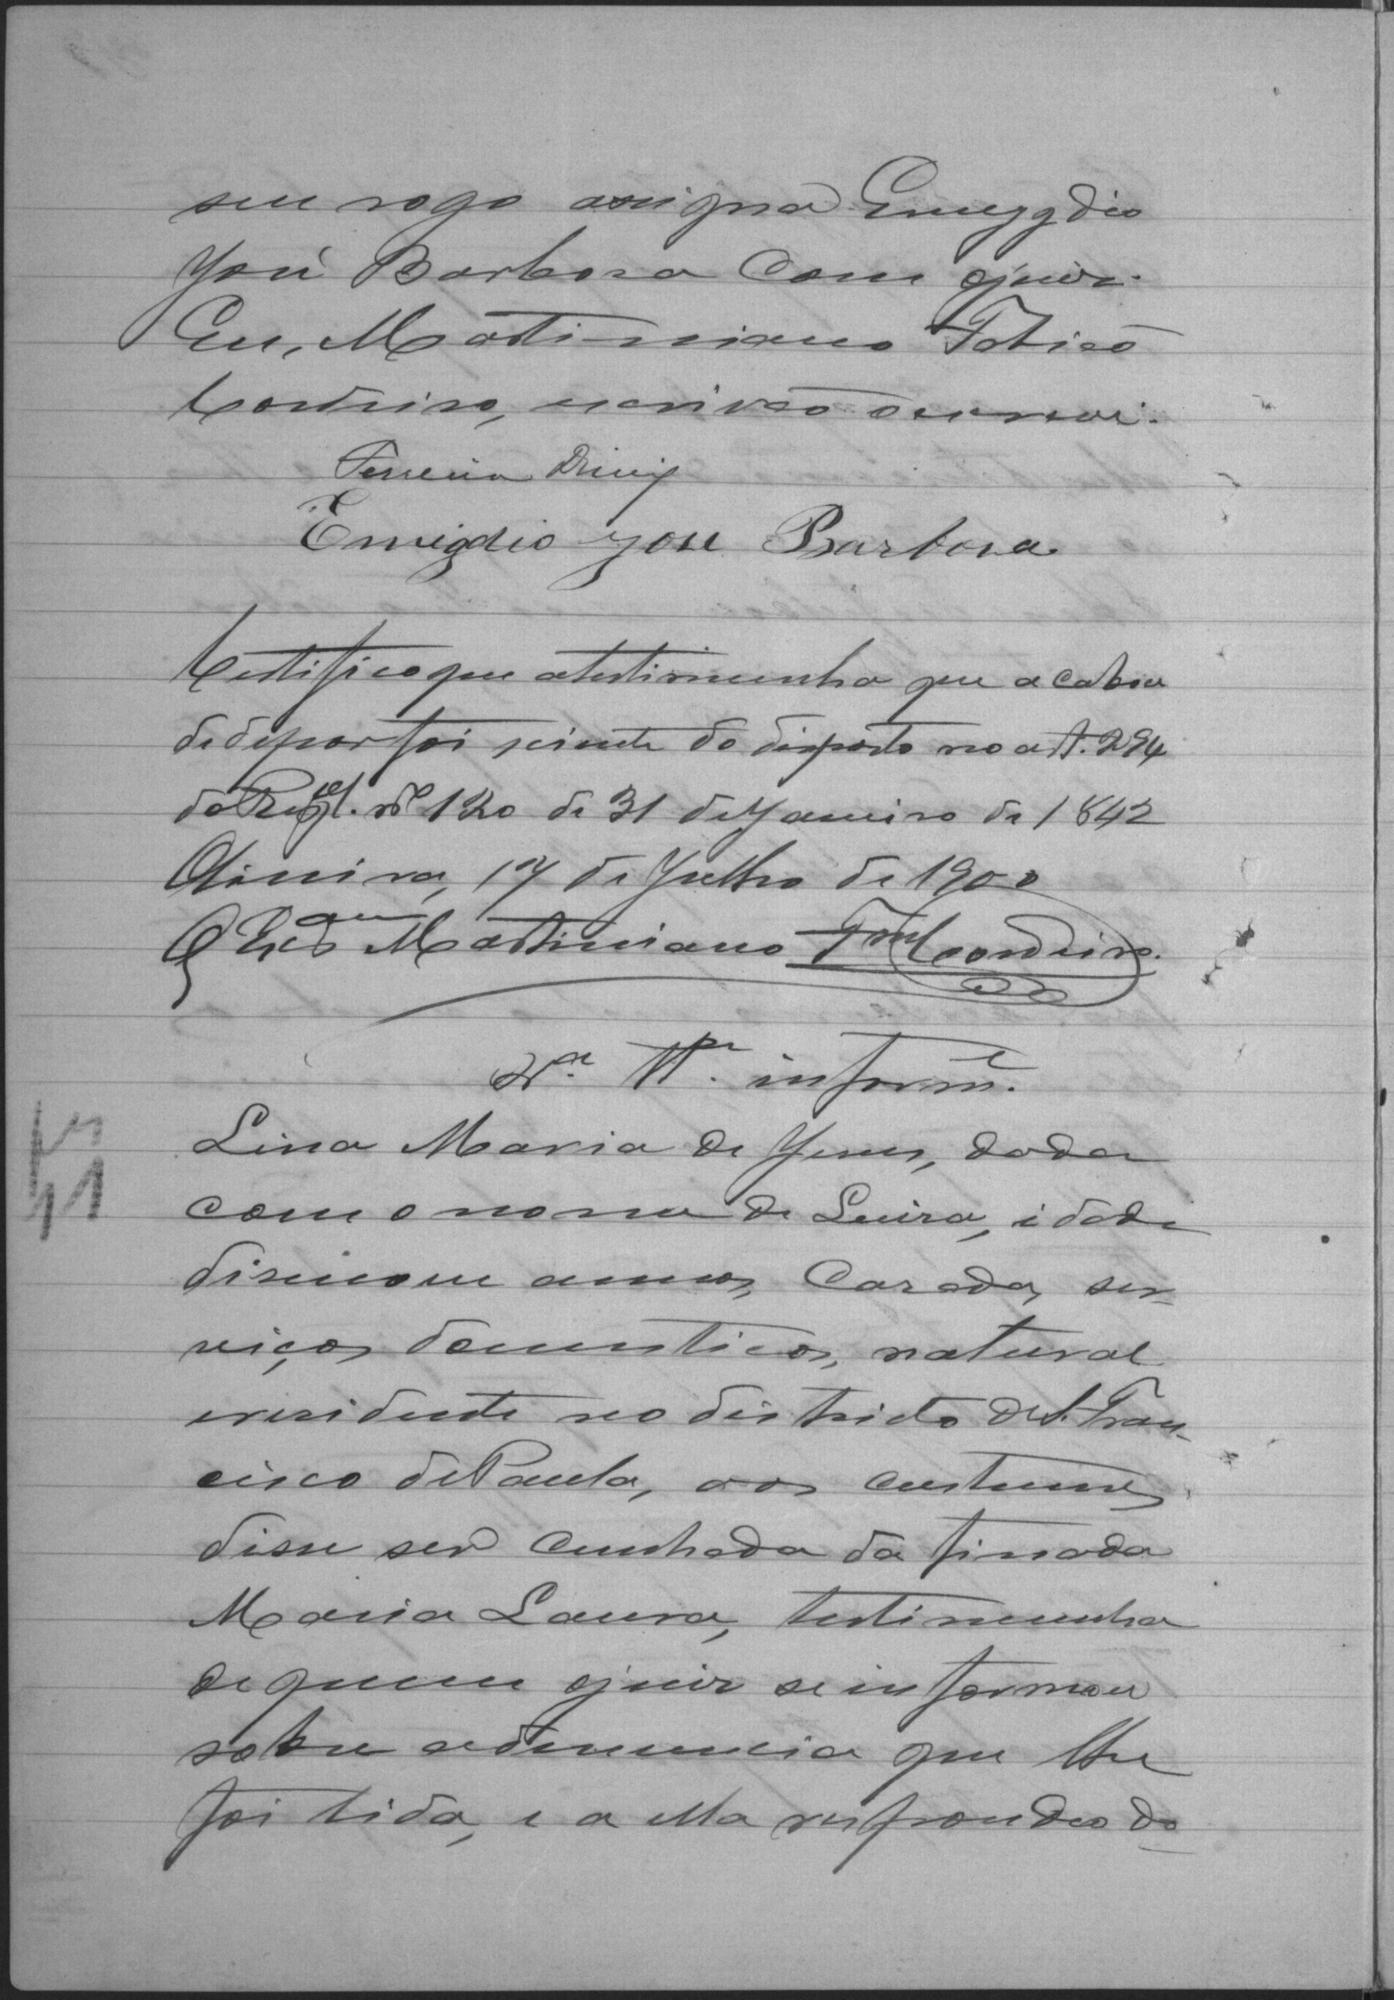 seu rogo assigna Emygdio
José Barbosa com o juiz.
Eu, Martimiano
Cordeiro, escrivão o escrevi.
Ferreira Diniz
Emigdio Jose Barbosa
Certifico que a testimunha que acabou
de depor foi sciente do disposto no art. 294
do Regl. nº 120 de 31 de Janeiro de 1842
Oliveira, 17 de Julho de 1900
O Escram Martimiano Cordeiro.
2ª. Tª. inform.e
Lina Maria de Jesus, dada
com o nome de Luiza, idade
disenove annos, casada, ser-
viços domesticos, natural
e residente no districto de S. Fran-
cisco de Paula, aos custumes
disse ser cunhada da finada
Maria Laura, testimunha
de quem o juiz se informou
sobre a denuncia que lhe
foi lida, e a ella respondeo do